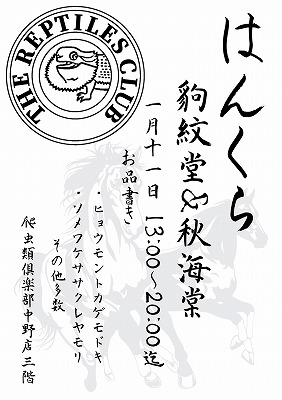 THE REPTILES CLUB
はんくら
豹紋堂&秋海棠
一月十一日 13:00～20:00迄
お品書き
・ヒョウモントカゲモドキ
・ソメワケササクレヤモリ
その他多数
爬虫類倶楽部中野店三階